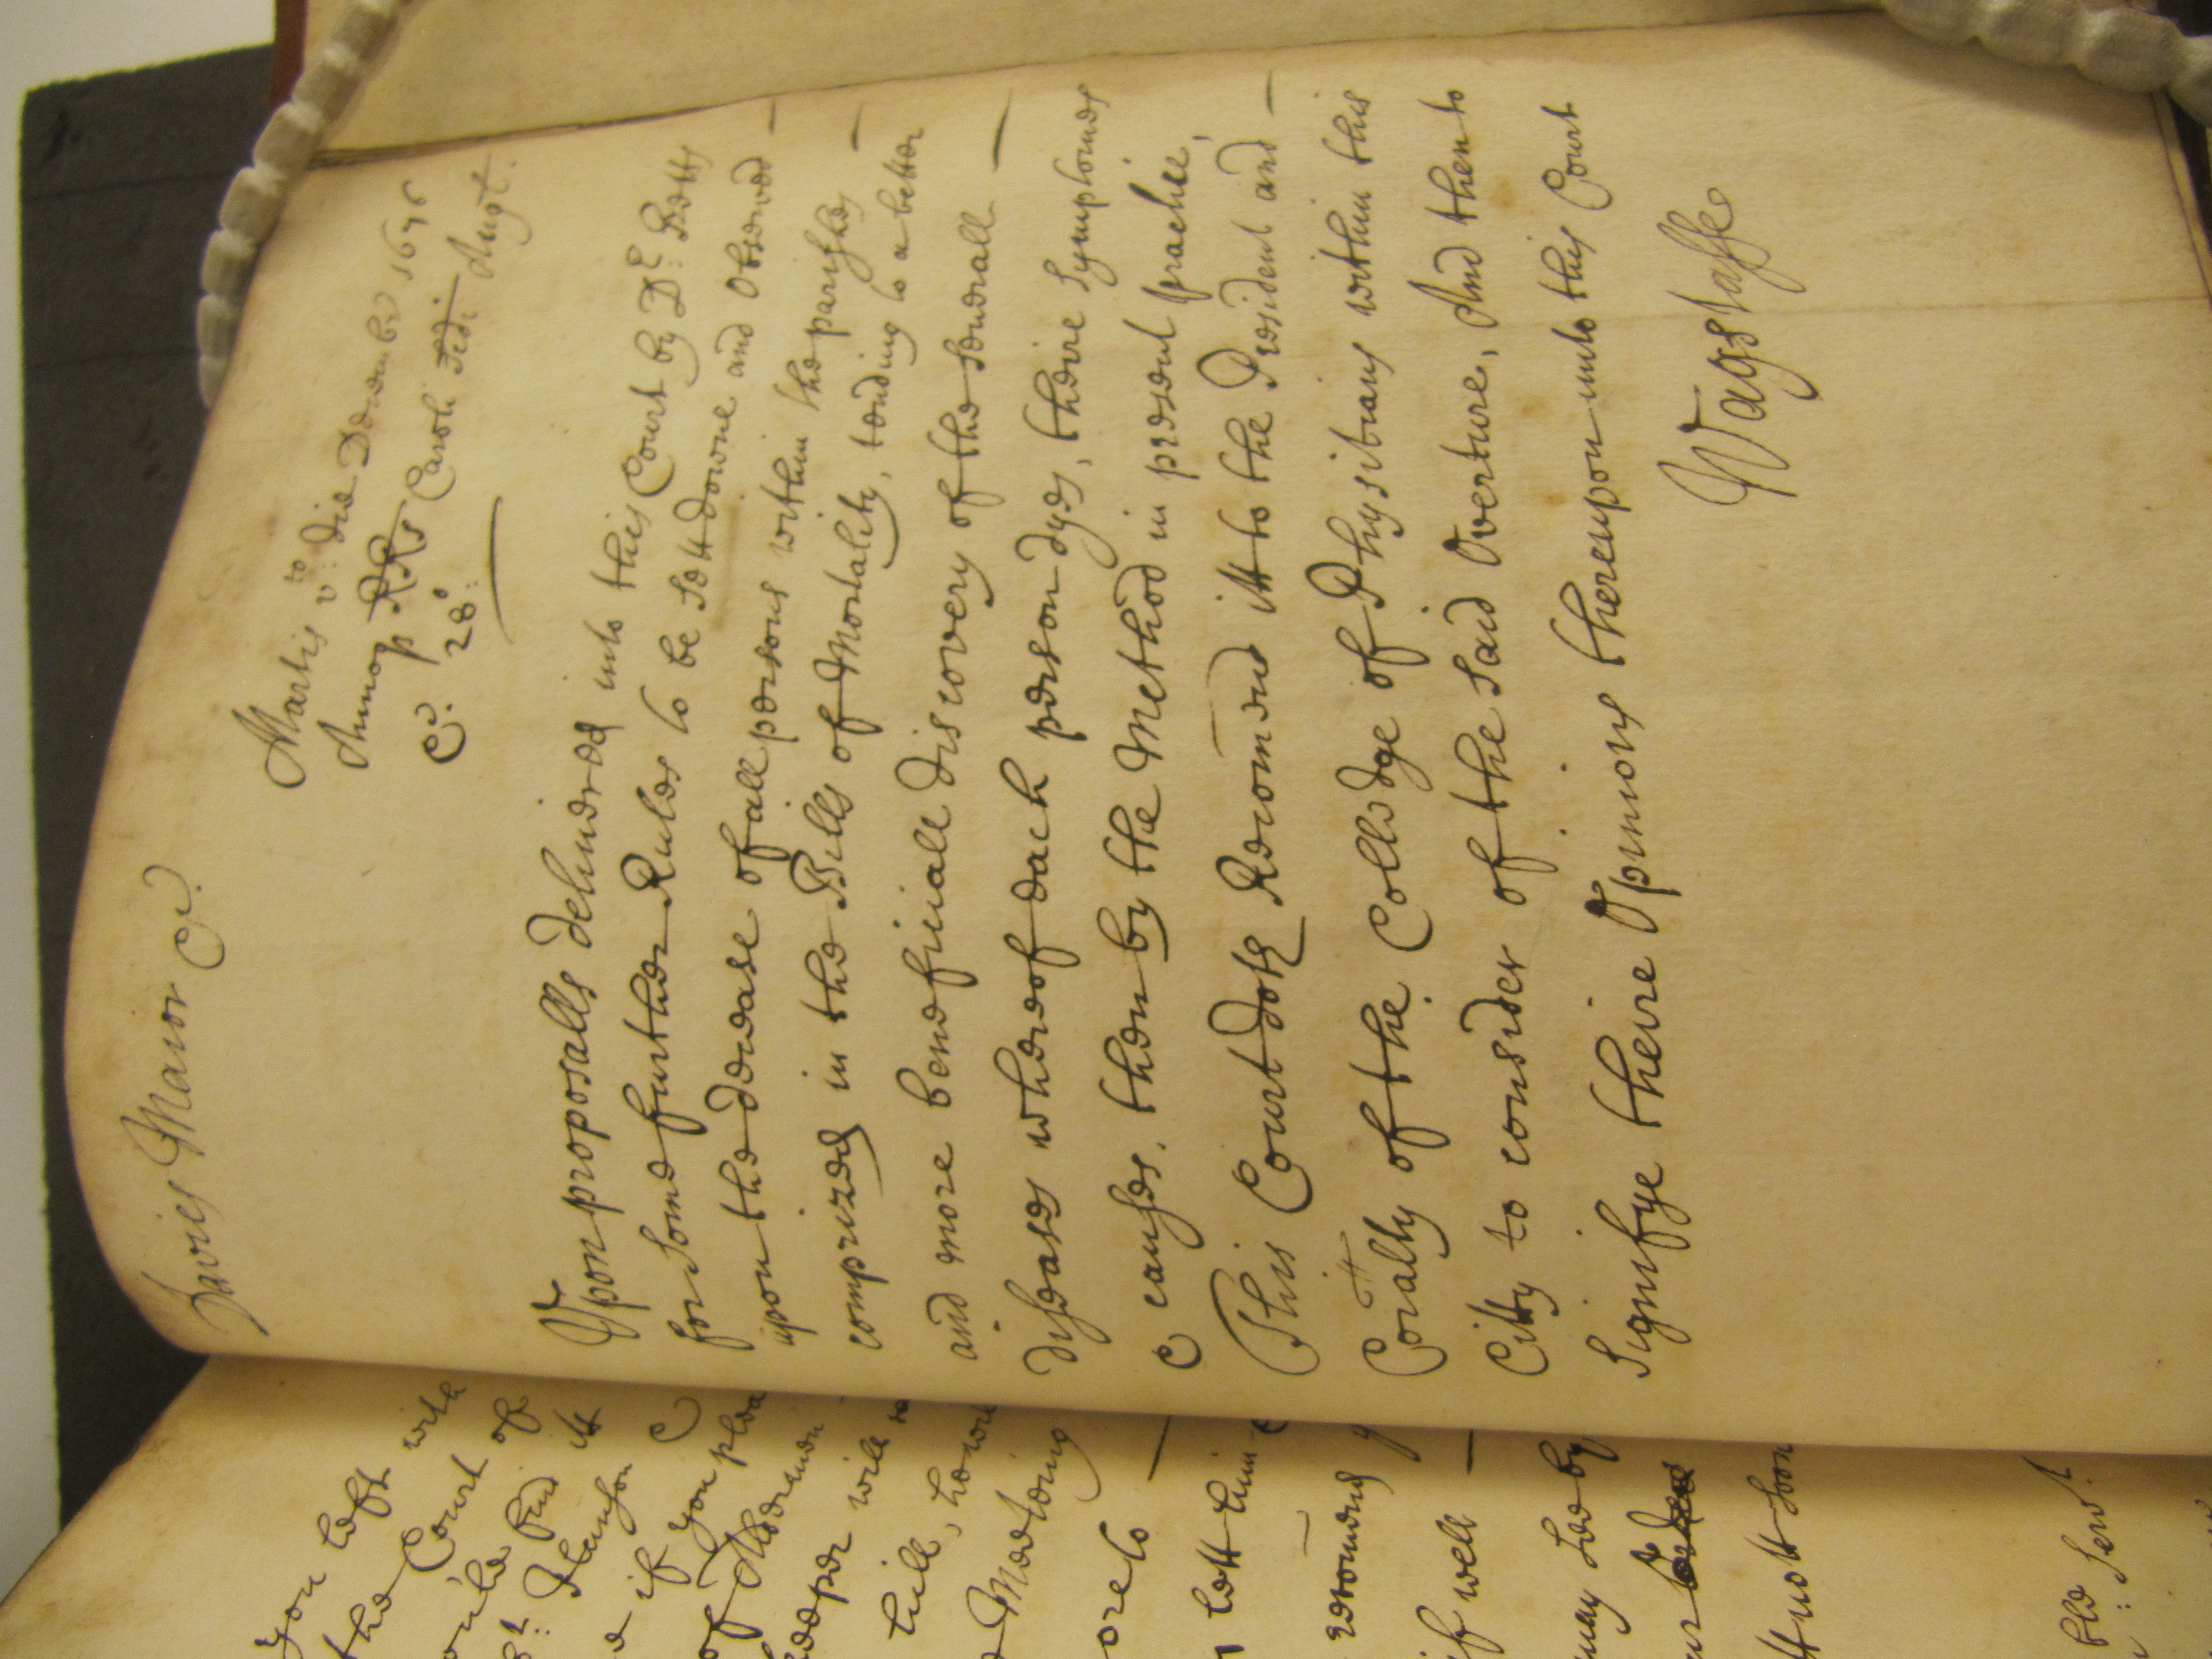 Davies Maior &.
Martis v:to die Decembr 1676
Annoq RRs Caroli Scdi Angt.
&c. 28o:
Vpon proposalls deliuered into this Court by Dr: Betts
for some further Rules to be sett downe and observed —
upon the decease of all persons within the parishes —
comprized in the Bills of Mortality, tending to a better
and more beneficiall discovery of the severall —
diseases whereof each person dyes, theire symptomes
& causes. then by the Method in present practice,
This Court doth Recomend itt to the President and —
Coialty of the Colledge of Physitians within this
Citty to consider of the said Overture, And then to
Signifye theire Opinions thereupon unto this Court
Wagstaffe
you left with
the Court of
if you plea
of Aldermen
will
Meeting
lett him
if well
may see by
nott soon
Serv:t